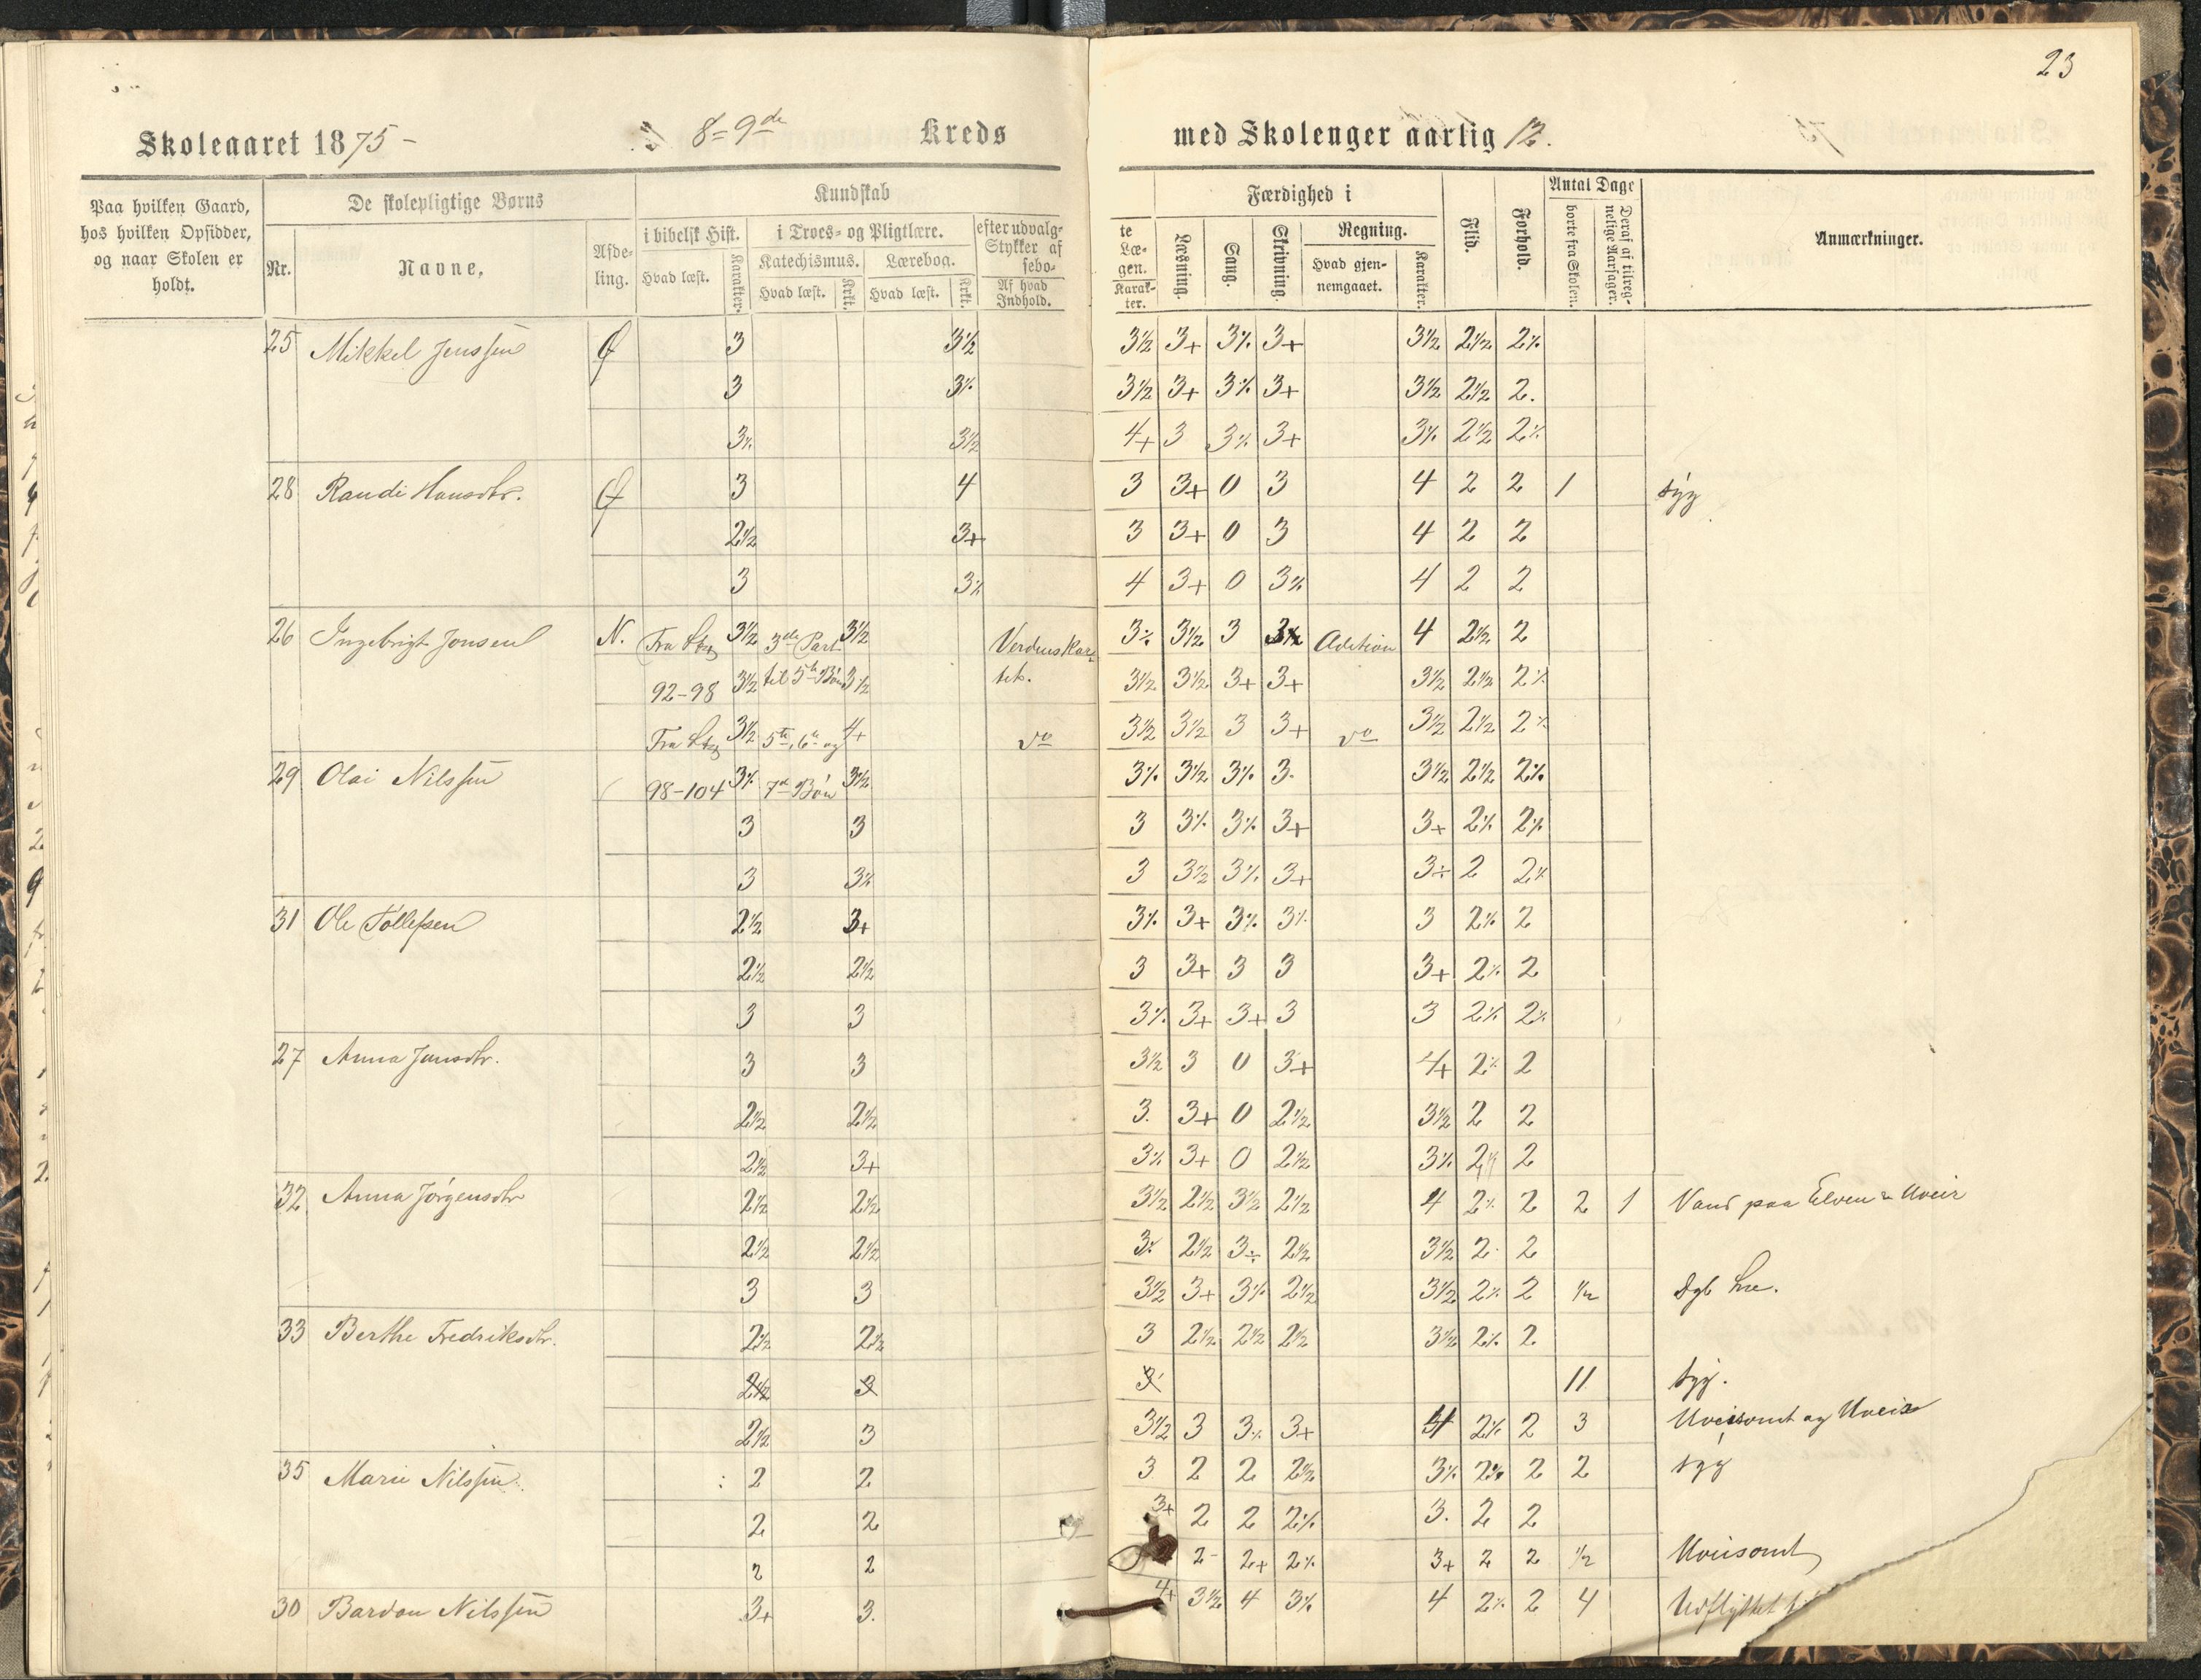 23
Skoleaaret 1875 -
8 = 9de
Kreds
med Skolenger aarlig 12.
Paa hvilken Gaard, hos hvilken Opsidder, og naar Skolen er holdt.
De skolepligtige Børns
Nr.
Navne.
Afdeling.
Kundskab
i bibelsk Hist.
Hvad læst.
Karakter.
i Troes- og Pligtlære.
Katechismus.
Hvad læst.
Krkt.
Lærebog.
Hvad læst.
Krkt.
efter udvalg-
Stykker af
sebo-
Af hvad
Indhold.
te
Læ-
gen.
Karak-
ter.
Færdighed i
Læsning.
Sang.
Skrivning.
Regning.
Hvad gjen-
nemgaaet.
Karakter.
Flid.
Forhold.
Antal Dage
borte fra Skolen.
Deraf af tilreg-
nelige Aarsager.
Anmærkninger.
25 Mikkel Jenssen 3 3½ 3½ 3+ 3⁒ 3+ 3½ 2½ 2⁒
3 3⁒ 3½ 3+ 3⁒ 3+ 3½ 2½ 2.
3⁒ 3½ 4+ 3 3⁒ 3+ 3⁒ 2½ 2⁒
28 Randi Hansdtr. 3 4 3 3+ 0 3 4 2 2 1 syg
2½ 3+ 3 3+ 0 3 4 2 2
3 3⁒ 4 3+ 0 3⁒ 4 2 2
26 Ingebrigt Jonsen N. Fra 3½ 3de Part 3½ Verdens Kar- 3⁒ 3½ 3 Adition 4 2½ 2
92-98 3½ til 5te Bøn 3½ tet. 3½ 3½ 3+ 3+ 3½ 2½ 2⁒
Fra 3½ 5te, 6te og 4+ do 3½ 3½ 3 3+ do 3½ 2½ 2⁒
29 Olai Nilssen 98-104 3⁒ 7de Bøn 3½ 3⁒ 3½ 3⁒ 3. 3½ 2½ 2⁒
3 3 3 3⁒ 3⁒ 3+ 3+ 2⁒ 2⁒
3 3⁒ 3 3½ 3⁒ 3+ 3÷ 2 2⁒
31 Ole Tollefsen 2½ 3+ 3⁒ 3+ 3⁒ 3⁒ 3 2⁒ 2
2½ 2½ 3 3+ 3 3 3+ 2⁒ 2
3 3 3⁒ 3+ 3+ 3 3 2⁒ 2⁒
27 Anna Jonsdtr. 3 3 3½ 3 0 3+ 4+ 2⁒ 2
2½ 2½ 3. 3+ 0 2½ 3½ 2 2
2½ 3+ 3⁒ 3+ 0 2½ 3⁒ 2⁒ 2
32 Anna Jørgensdtr 2½ 2½ 3½ 2½ 3½ 2½ 4 2⁒ 2 2 1 Vand paa Elven & Uveir
2½ 2½ 3⁒ 2½ 3÷ 2½ 3½ 2 2
3 3 3½ 3+ 3⁒ 2½ 3½ 2⁒ 2 ½
33 Berthe Fredriksdtr. 2½ 2½ 3 2½ 2½ 2½ 3½ 2⁒ 2
2½ 3 3 11 syg.
2½ 3 3½ 3 3⁒ 3+ 4 2⁒ 2 3 Uveisomt og Uveir
35 Marie Nilssen 2 2 3 2 2 2½ 3⁒ 2⁒ 2 2 syg
2 2 3+ 2 2 2⁒ 3. 2 2
2 2 2 2+ 2⁒ 3+ 2 2 ½ Uveisomt
30 Bardon Nilssen 3+ 3. 4+ 3½ 4 3⁒ 4 2⁒ 2 4 Udflyttet